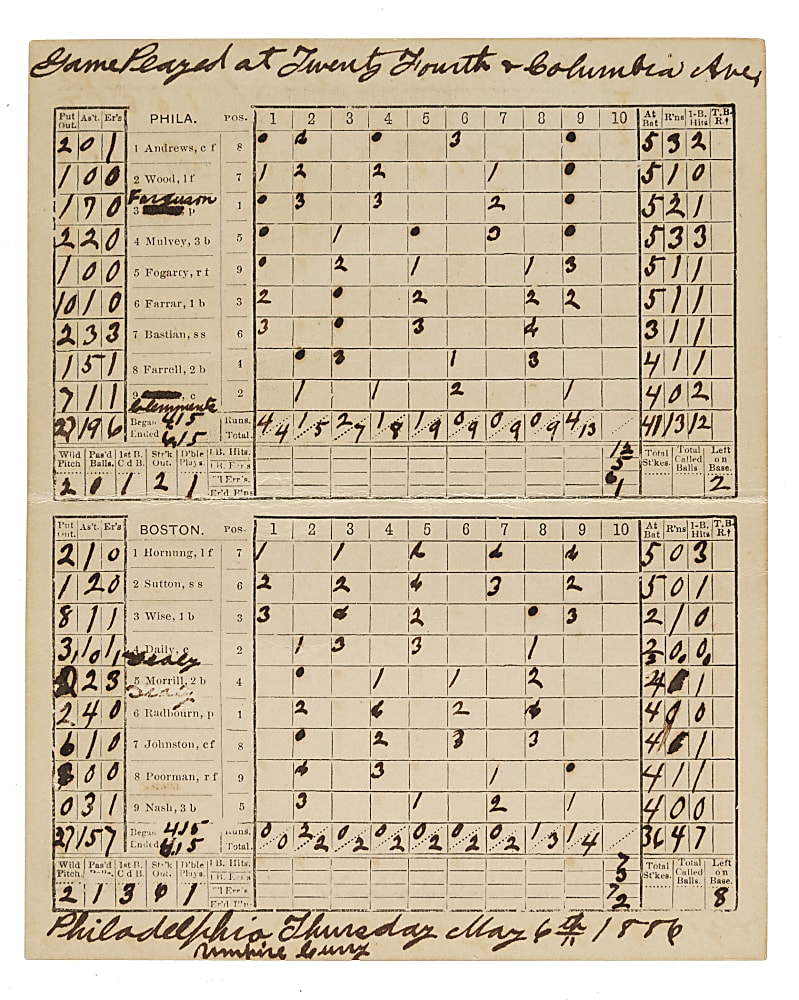 Game Played at Twenty Fourth & Columbia Ave,
Put Out. As't. Er's PHILA. POS. 1 2 3 4 5 6 7 8 9 10 At Bat R'ns 1-B. Hits T.B. R.
2 0 1 1 Andrews, c f 8 5 3 2
1 0 0 2 Wood, l f 7 1 2 2 1 5 1 0
Ferguson
1 7 0 3 p 1 3 3 2 5 2 1
2 2 0 4 Mulvey, 3 b 5 1 3 5 3 3
1 0 0 5 Fogarty, r f 9 2 1 1 3 5 1 1
10 1 0 6 Farrar, 1 b 3 2 2 2 2 5 1 1
2 3 3 7 Bastian, s s 6 3 3 4 3 1 1
1 5 1 8 Farrell, 2 b 4 3 1 3 4 1 1
7 1 1 9 , c 2 1 1 2 1 4 0 2
Clemments
27 19 6 Began 415 Runs. 4/4 1/5 2/7 1/8 1/9 0/9 0/9 0/9 4/13 41 13 12
Ended 615 Total.
Wild Pitch Pas'd Balls. 1st B. C d B. Str'k Out. D'ble Plays. 1 B. Hits. 12 Total St'kes. Total Called Balls Left on Base.
5
6
2 0 1 2 1 Er'd R'ns 1 2
Put Out. As't. Er's BOSTON. POS. 1 2 3 4 5 6 7 8 9 10 At Bat R'ns 1-B. Hits T.B. R.
2 1 0 1 Hornung, l f 7 1 1 4 4 4 5 0 3
1 2 0 2 Sutton, s s 6 2 2 4 3 2 5 0 1
8 1 1 3 Wise, 1 b 3 3 4 2 3 2 1 0
3, 1 0 1, 4 Daily, c 2 1 3 3 1 0, 0,
Dealy
2 3 5 Morrill, 2 b 4 1 1 2 4 1
Dealy
2 4 0 6 Radbourn, p 1 2 2 4 0
6 1 0 7 Johnston, c f 8 2 3 3 4 1
0 0 8 Poorman, r f 9 4 3 1 4 1 1
0 3 1 9 Nash, 3 b 5 3 1 2 1 4 0 0
27 15 7 Began 415 Runs. 0/0 2/2 0/2 0/2 0/2 0/2 0/2 1/3 1/4 36 4 7
Ended 615 Total.
Wild Pitch. Pas'd 1st B. C d B. Str'k Out. D'ble Plays. 1 B. Hits. 7 Total St'kes. Total Called Balls. Left on Base.
3
7
2 1 3 6 1 2 8
Philadelphia Thursday May 6th 1886
Umpire Curry